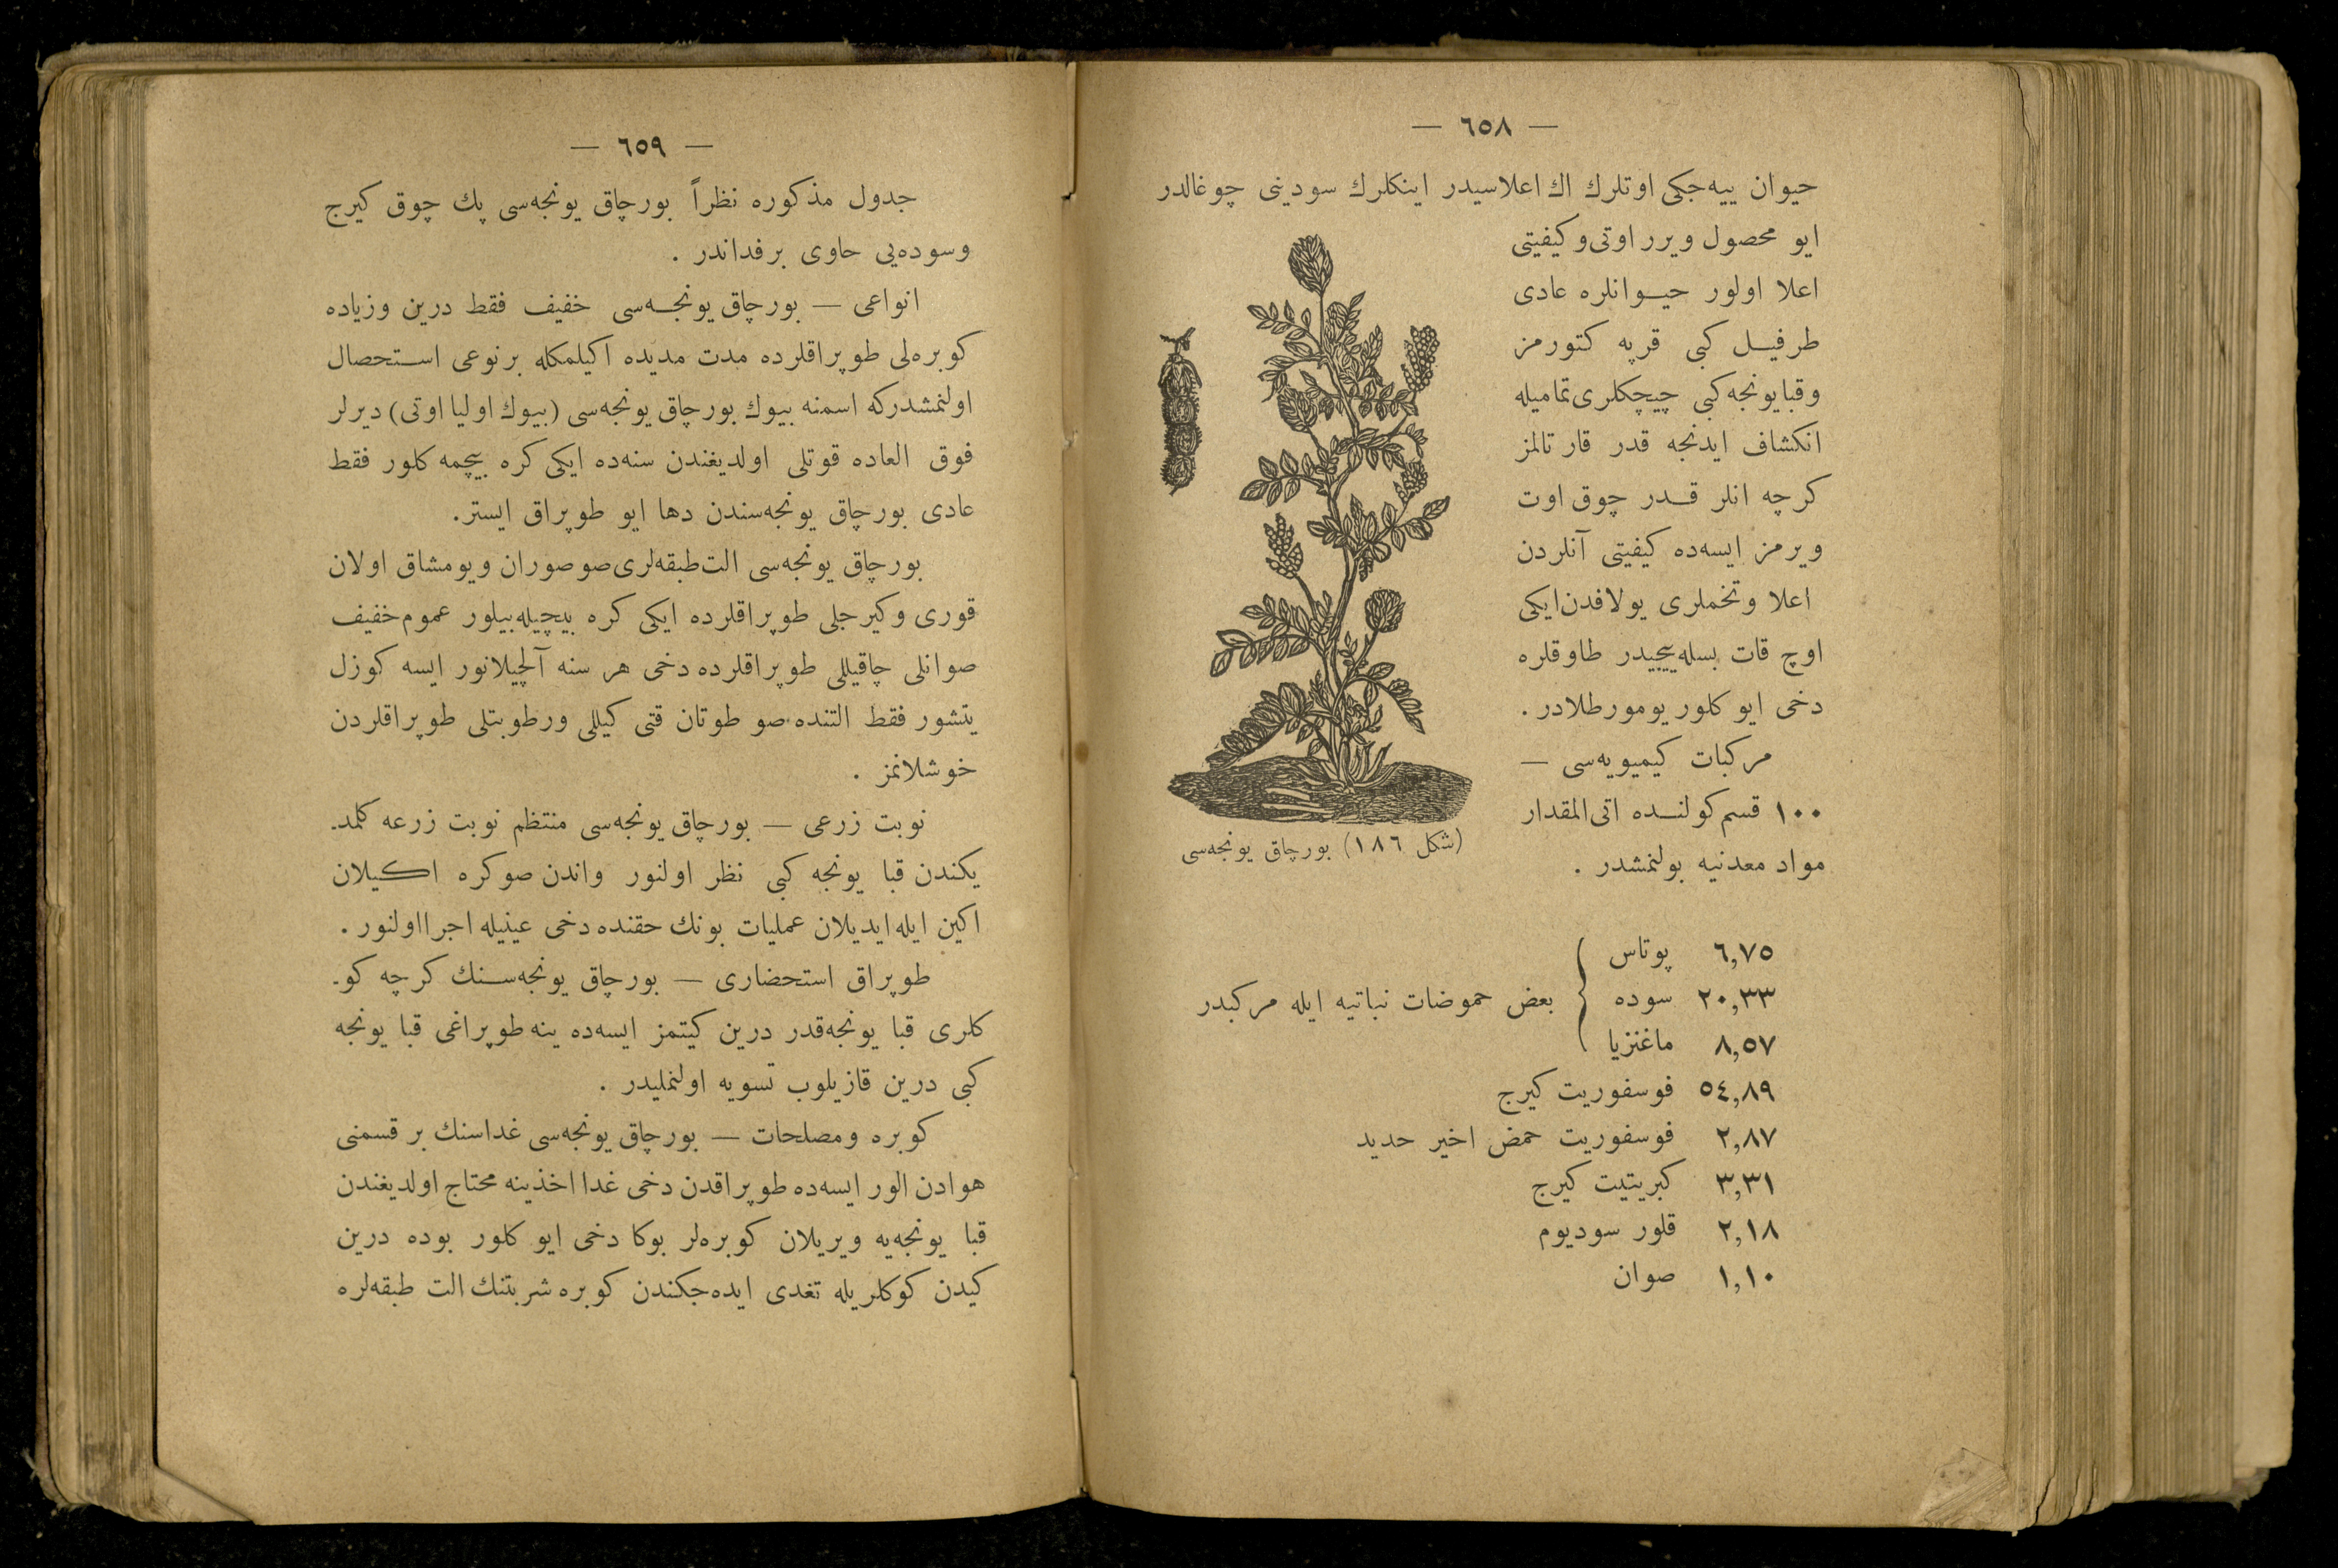 — ٦٥٨ —
حيوان ييه‌جكى اوتلرك اك اعلاسيدر اينكلرك سودينى چوغالدر
ايو محصول ويرر اوتى وكيفيتى
اعلا اولور حيوانلره عادى
طرفيل كبى قرپه كتورمز
وقبايونجه كبى چيچكلرى تماميله
انكشاف ايدنجه قدر قارتالمز
كرچه انلر قدر چوق اوت
ويرمز ايسه‌ده كيفيتى آنلردن
اعلا وتخملرى يولافدن ايكى
اوچ قات بسله‌ييجيدر طاوقلره
دخى ايو كلور يومورطلادر .
مركبات كيميويه‌سى —
١٠٠ قسم كولنده اتى المقدار
مواد معدنيه بولنمشدر .
(شكل ١٨٦) بورچاق يونجه‌سى
٦,٧٥ پوتاس
٢٠,٣٣ سوده } بعض حموضات نباتيه ايله مركبدر
٨,٥٧ ماغنزيا
٥٤,٨٩ فوسفوريت كيرج
٢,٨٧ فوسفوريت حمض اخير حديد
٣,٣١ كبريتيت كيرج
٢,١٨ قلور سوديوم
١,١٠ صوان
— ٦٥٩ —
جدول مذكوره نظراً بورچاق يونجه‌سى پك چوق كيرج
وسوده‌يى حاوى برفداندر .
انواعى — بورچاق يونجه‌سى خفيف فقط درين وزياده
كوبره‌لى طوپراقلرده مدت مديده اكيلمكله برنوعى استحصال
اولنمشدركه اسمنه بيوك بورچاق يونجه‌سى (بيوك اوليا اوتى) ديرلر
فوق العاده قوتلى اولديغندن سنه‌ده ايكى كره بيچمه كلور فقط
عادى بورچاق يونجه‌سندن دها ايو طوپراق ايستر.
بورچاق يونجه‌سى الت طبقه‌لرى صو صوران ويومشاق اولان
قورى وكيرجلى طوپراقلرده ايكى كره بيچيله‌بيلور عموم خفيف
صوانلى چاقيللى طوپراقلرده دخى هر سنه آلچيلانور ايسه كوزل
يتشور فقط التنده صو طوتان قتى كيللى ورطوبتلى طوپراقلردن
خوشلانمز .
نوبت زرعى — بورچاق يونجه‌سى منتظم نوبت زرعه كلمد-
يكندن قبا يونجه كبى نظر اولنور واندن صوكره اكيلان
اكين ايله ايديلان عمليات بونك حقنده دخى عينيله اجرا اولنور .
طوپراق استحضارى — بورچاق يونجه‌سنك كرچه كو-
كلرى قبا يونجه‌قدر درين كيتمز ايسه‌ده ينه طوپراغى قبا يونجه
كبى درين قازيلوب تسويه اولنمليدر .
كوبره ومصلحات — بورچاق يونجه‌سى غداسنك بر قسمنى
هوادن الور ايسه‌ده طوپراقدن دخى غدا اخذينه محتاج اولديغندن
قبا يونجه‌يه ويريلان كوبره‌لر بوكا دخى ايو كلور بوده درين
كيدن كوكلريله تغدى ايده‌جكندن كوبره شربتنك الت طبقه‌لره